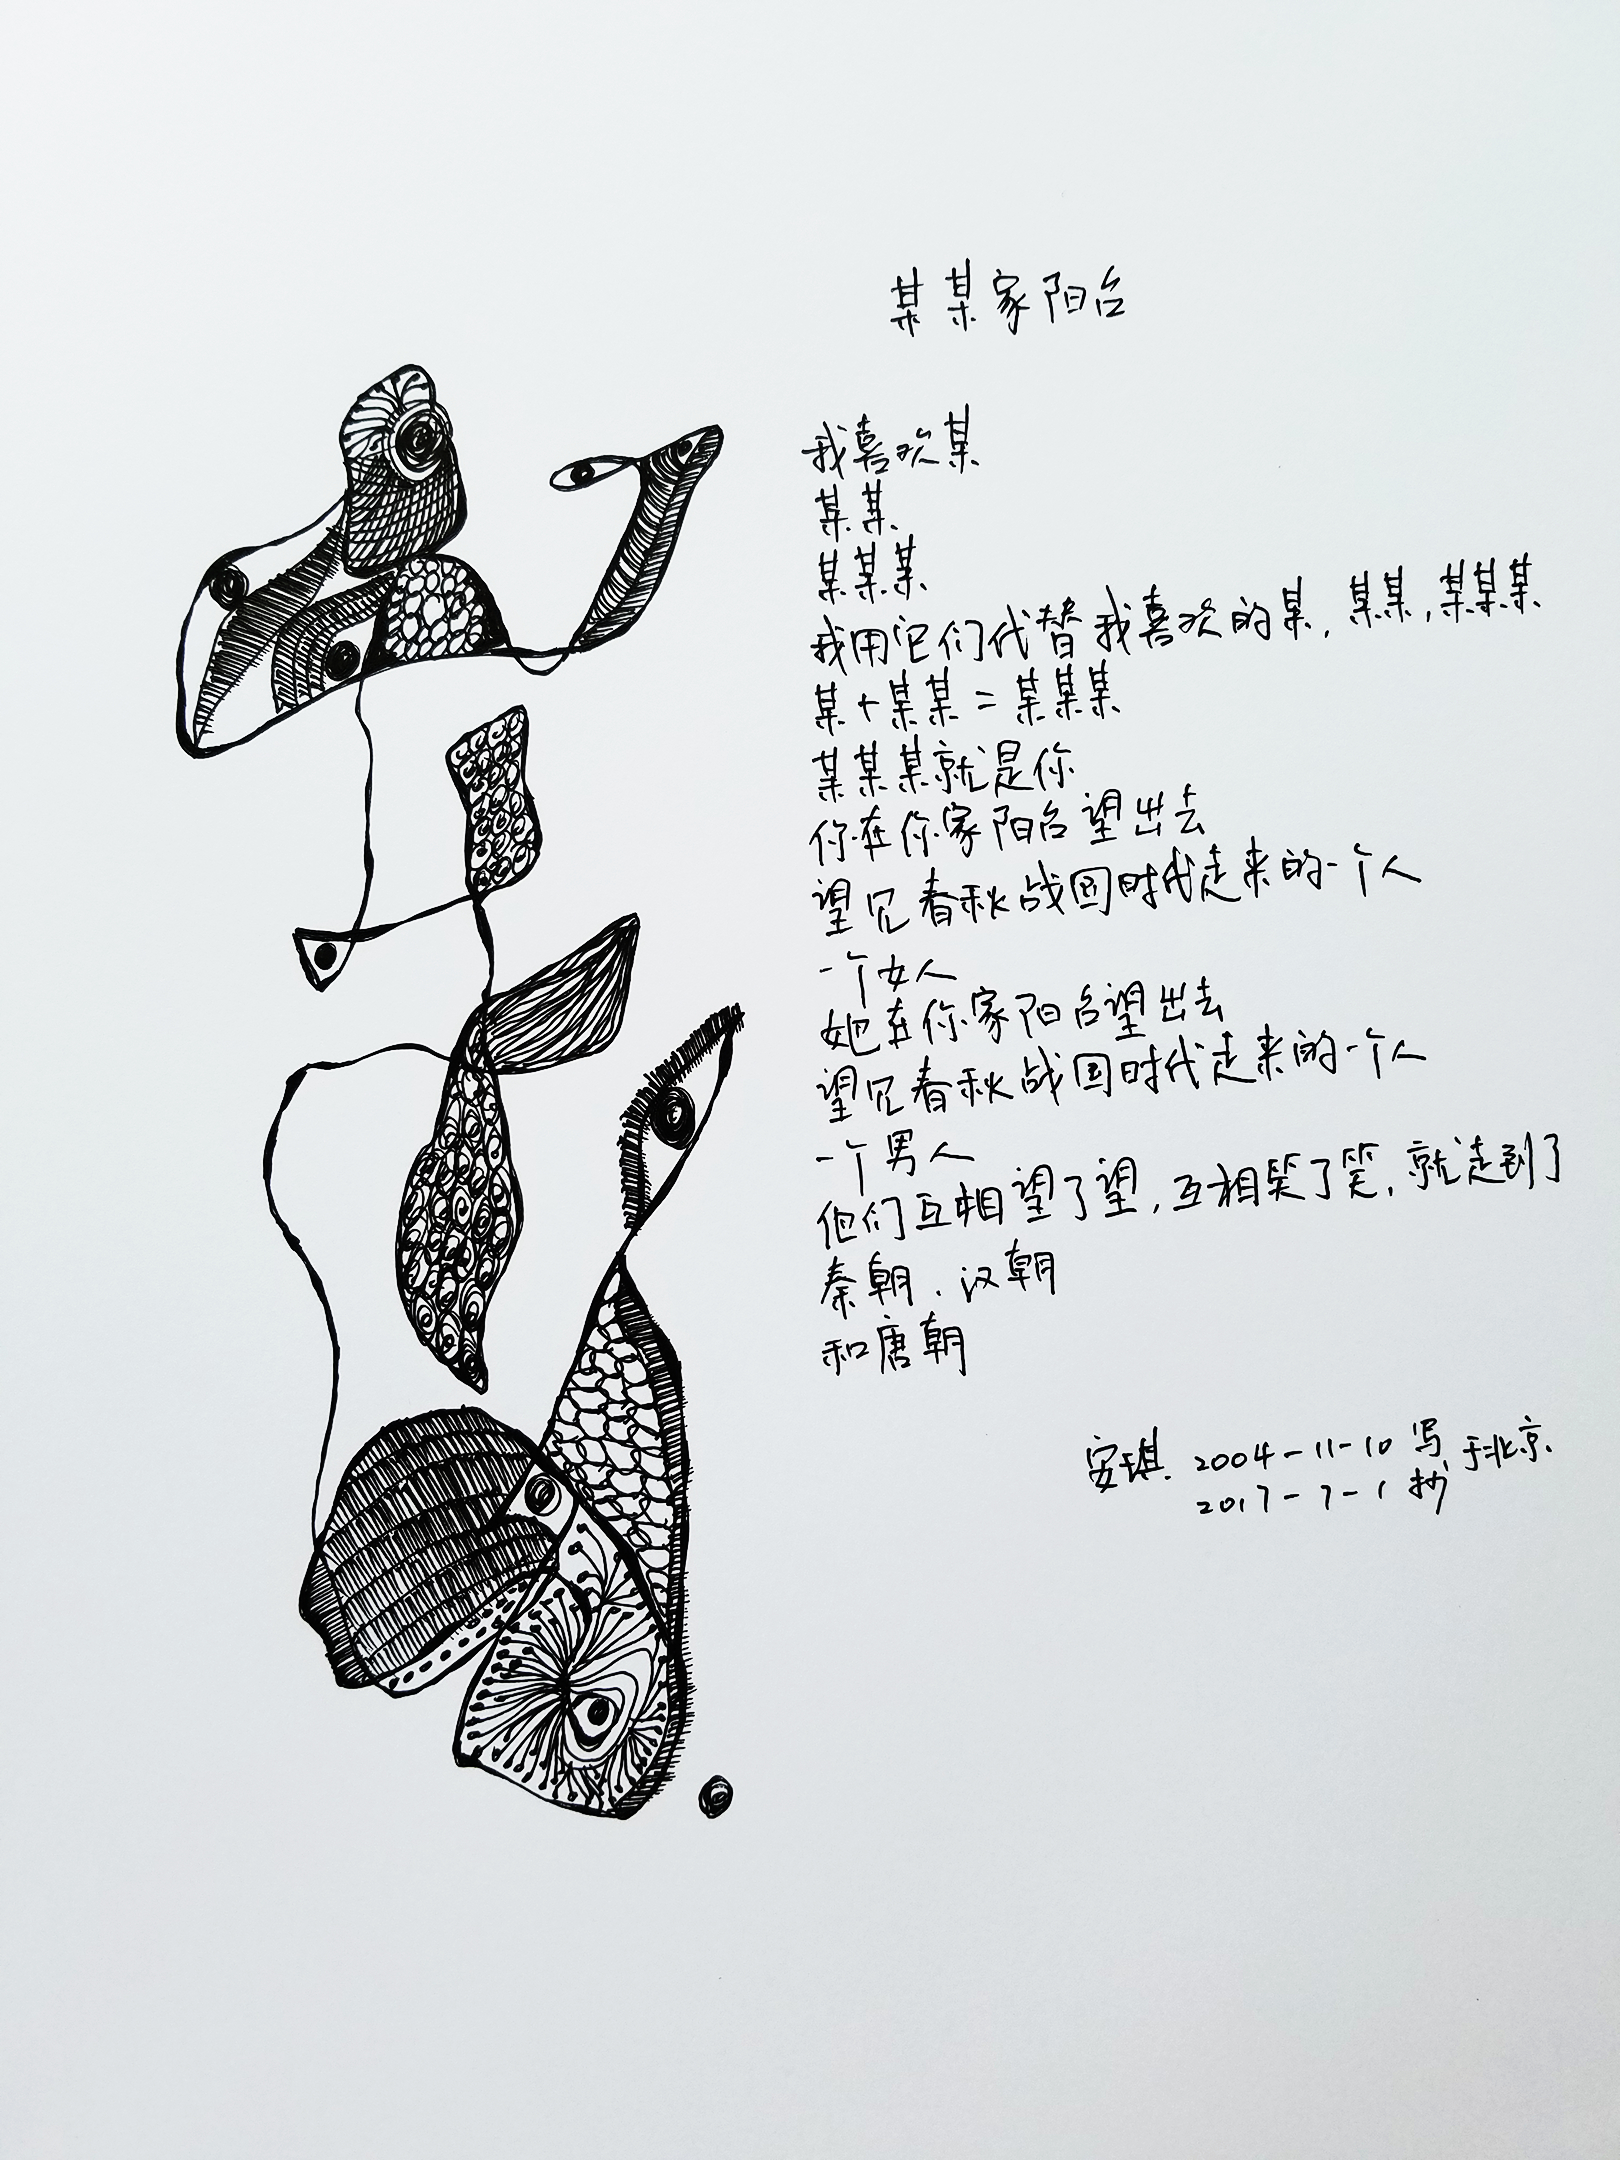 某某家阳台
我喜欢某
某某
某某某
我用它们代替我喜欢的某，某某，某某某
某+某某=某某某
某某某就是你
你在你家阳台望出去
望见春秋战国时代走来的一个人
一个女人
她在你家阳台望出去
望见春秋战国时代走来的一个人
一个男人
他们互相望了望，互相笑了笑，就走到了
秦朝、汉朝
和唐朝
安琪 2004-11-10 写于北京
2017-7-1 抄